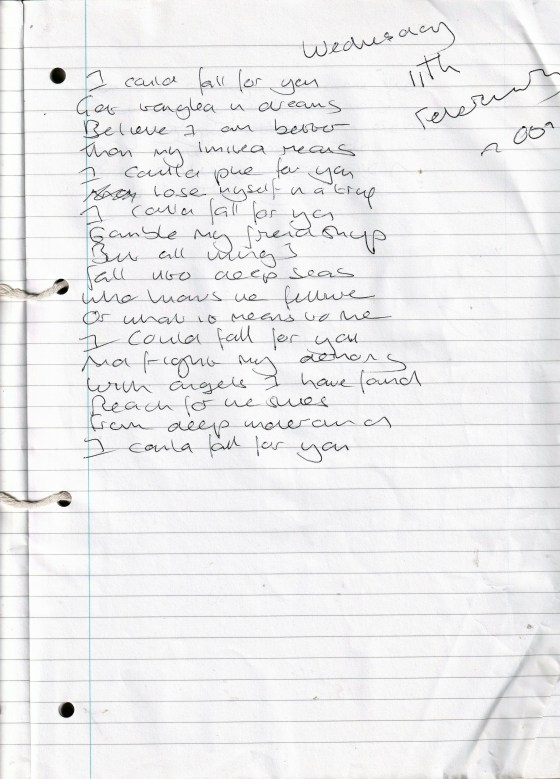 Wednesday
11th
February
2009
I could fall for you
Get tangled in dreams
Believe I am better
Than my limited means
I could pine for you
lose myself in a
I could fall for you
Gamble my friendship
But all things
fall into deep seas
who knows the future
Or what it means to me
I Could fall for you
And fight my demons
With angels I have found
Reach for the skies
From deep underground
I could fall for you